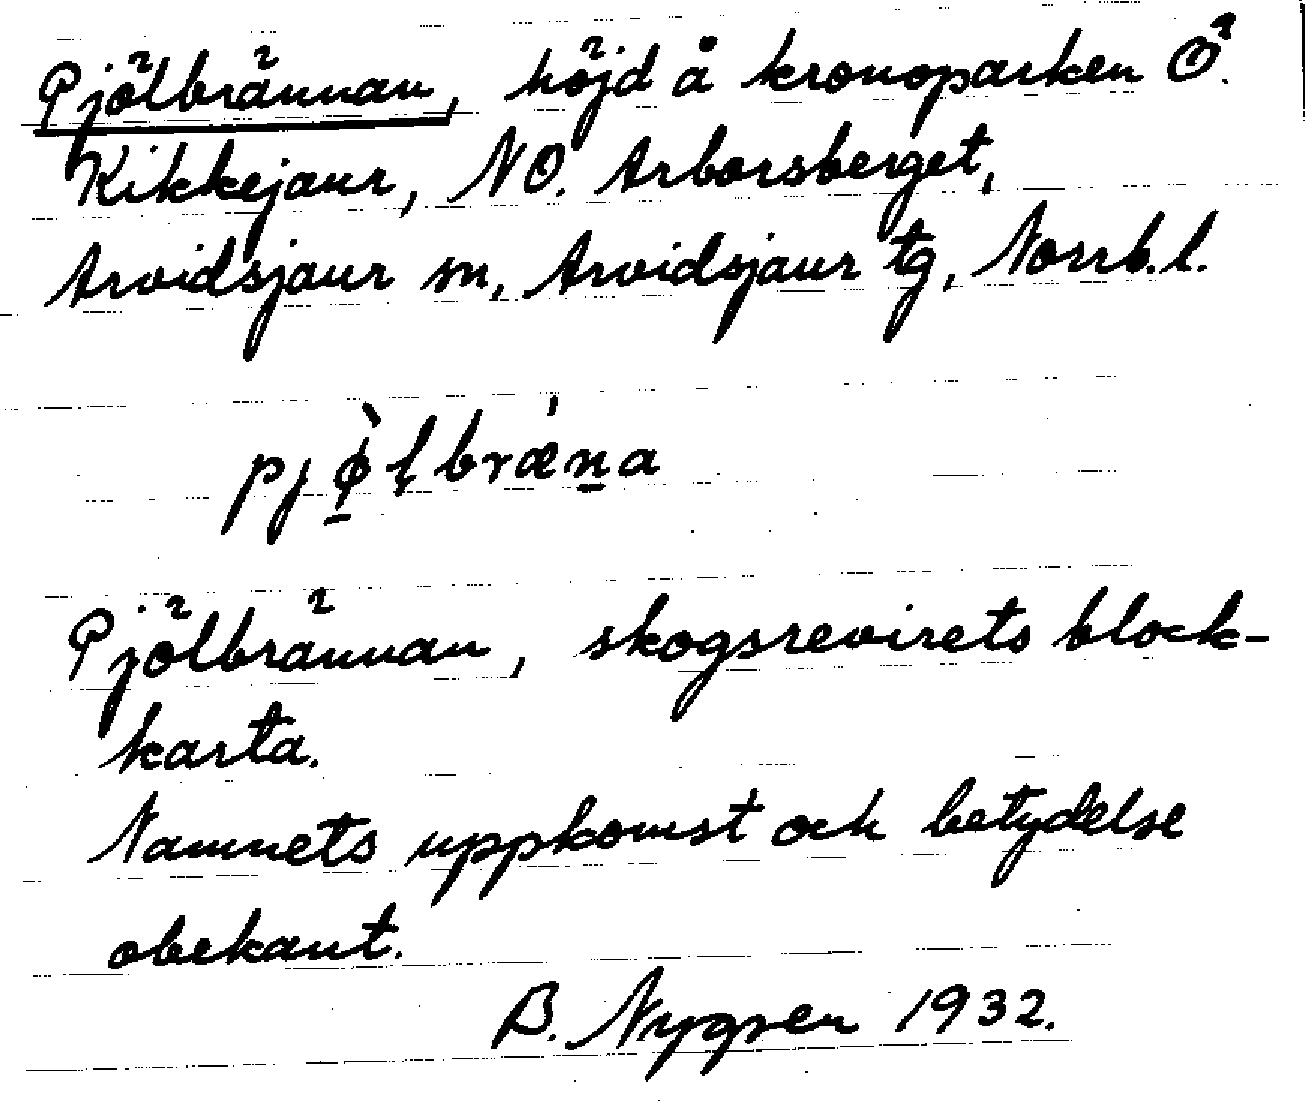 Pjölbrännan, höjd å kronoparken Ö.
Kikkejaur, NO. Arborsberget,
Arvidsjaur sn, Arvidsjaur tg, Norrb.l.
pjø̠̀ɭbrǽn̠a
Pjölbrännan, skogsrevirets block-
karta.
Namnets uppkomst och betydelse
obekant.
B. Nygren 1932.